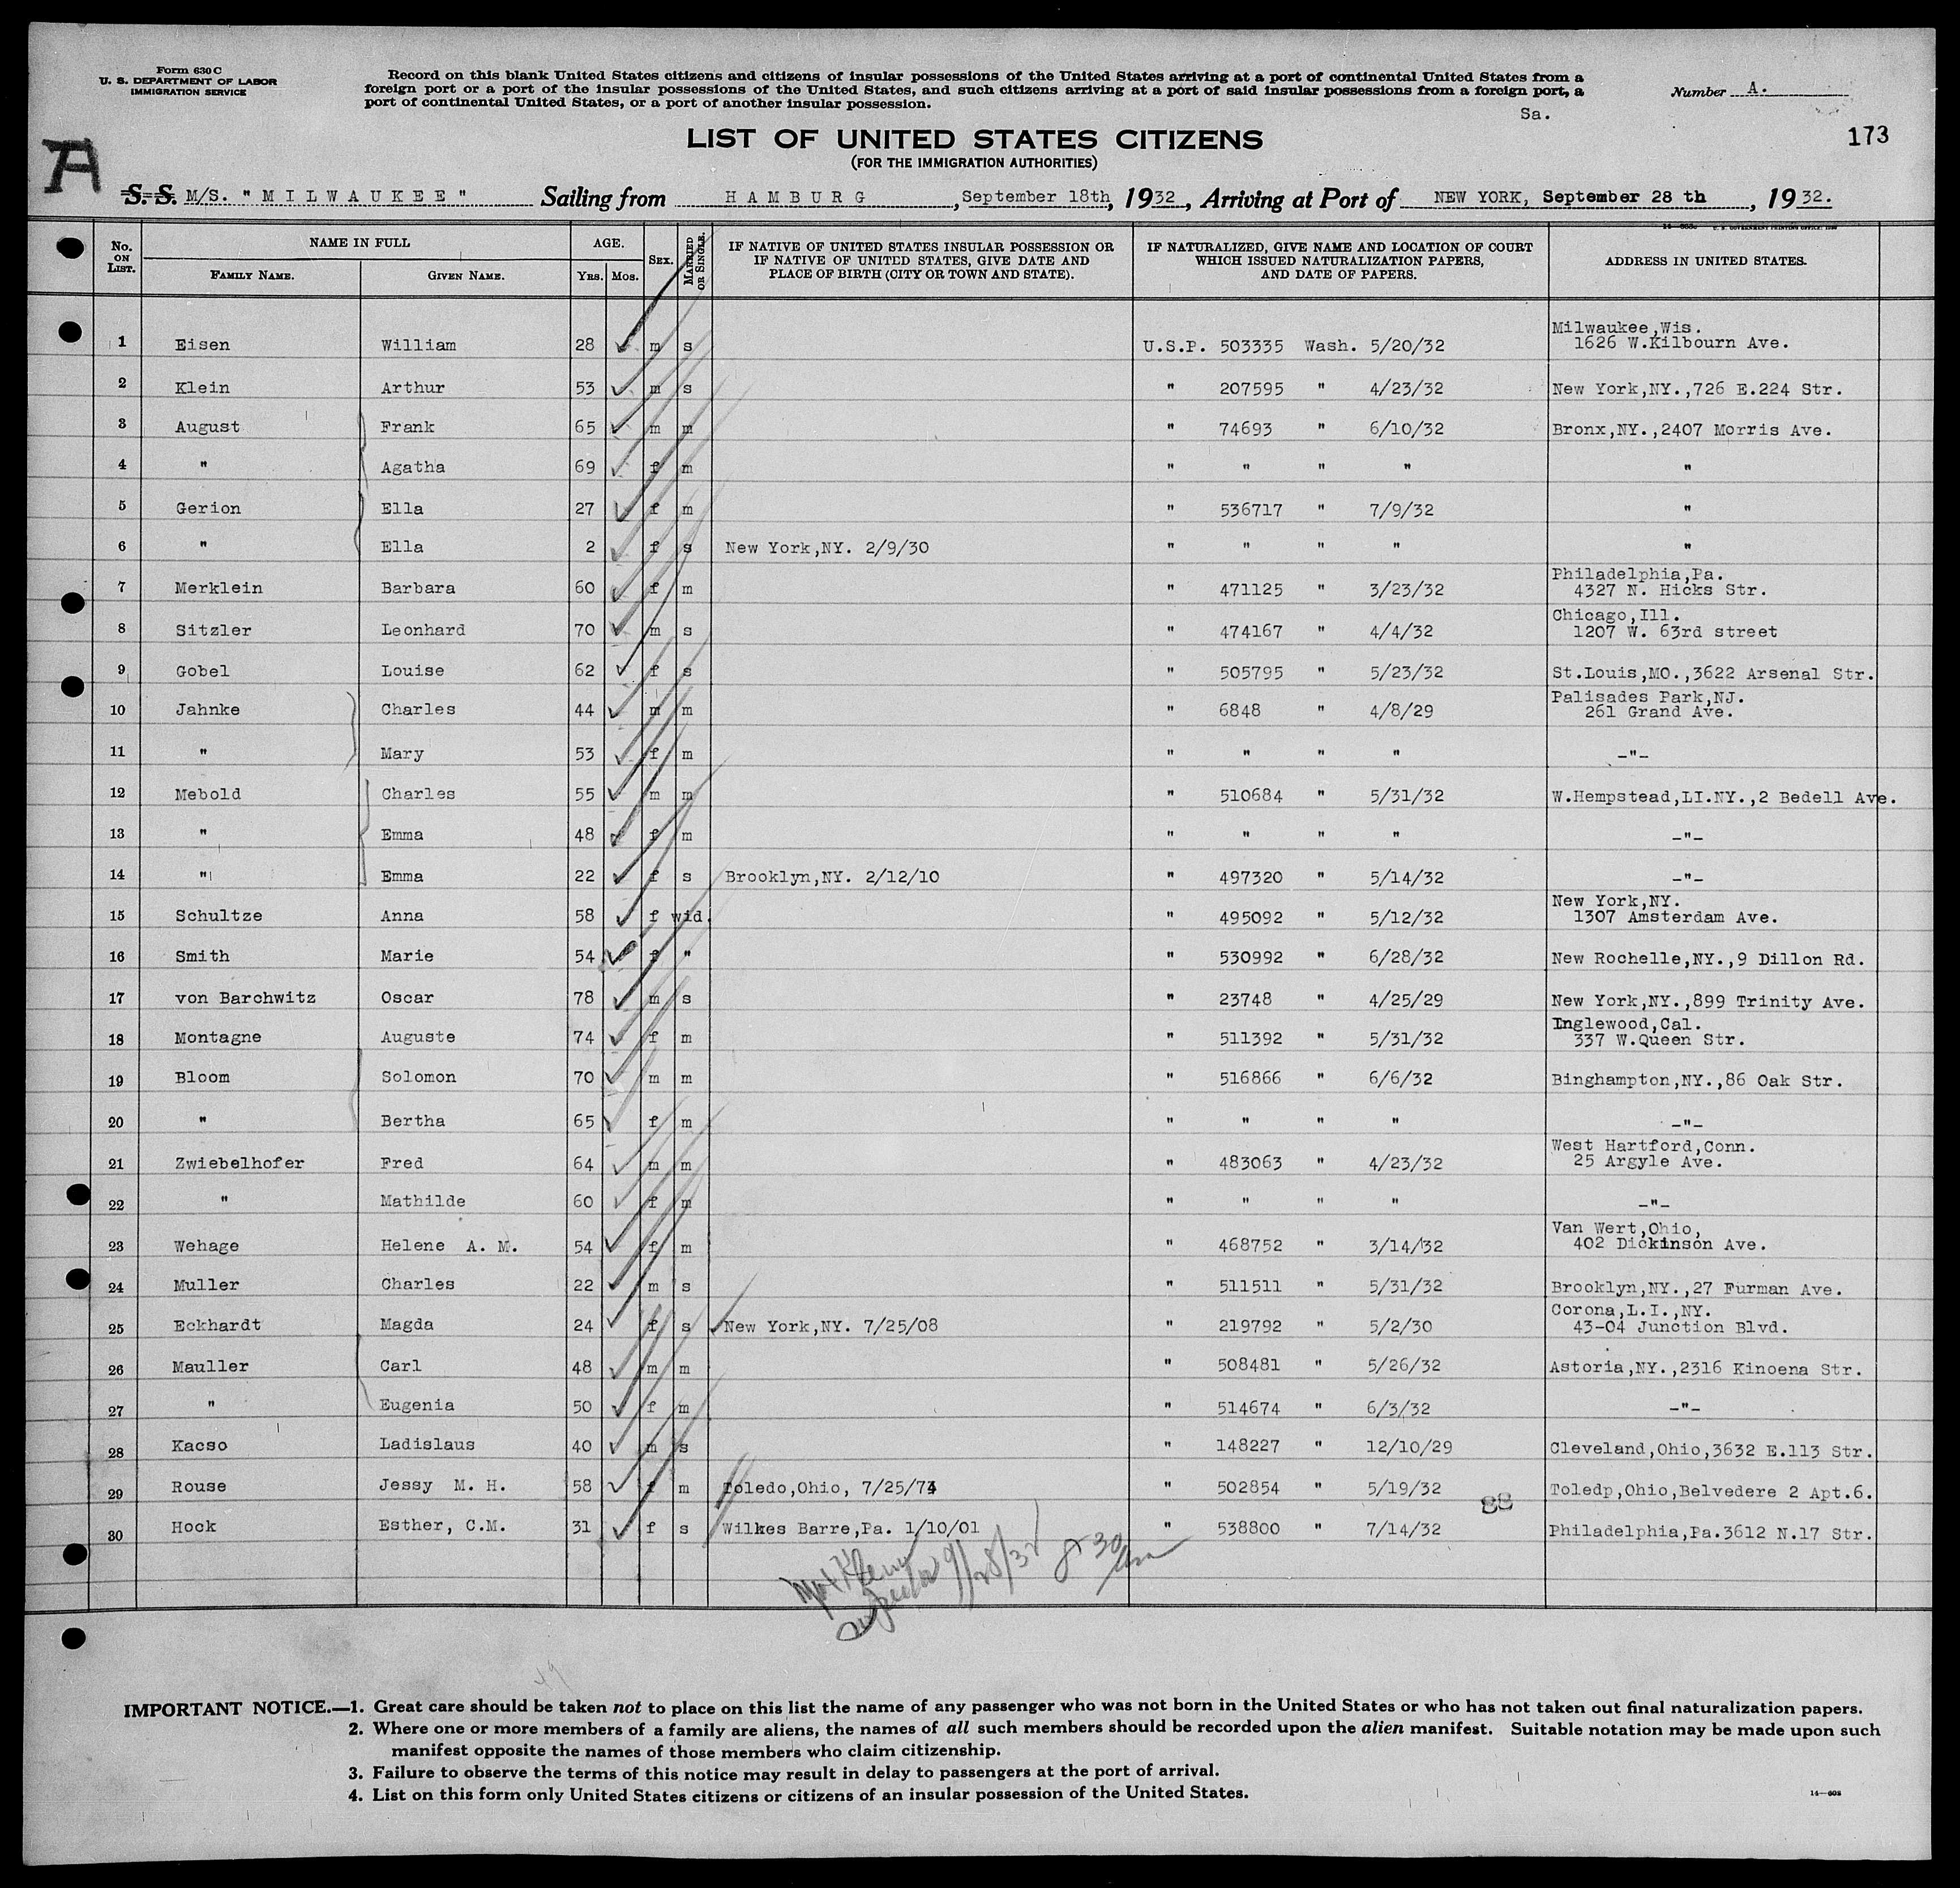 Form 630 C
U. S. DEPARTMENT OF LABOR
IMMIGRATION SERVICE
Record on this blank United States citizens and citizens of insular possessions of the United States arriving at a port of continental United States from a
foreign port or a port of the insular possessions of the United States, and such citizens arriving at a port of said insular possessions from a foreign port, a
port of continental United States, or a port of another insular possession.
Number A.
Sa.
A
173
LIST OF UNITED STATES CITIZENS
(FOR THE IMMIGRATION AUTHORITIES)
S. S. M/S. " M I L W A U K E E " Sailing from H A M B U R G , September 18th, 1932, Arriving at Port of NEW YORK, September 28 th, 1932.
No. ON LIST. NAME IN FULL FAMILY NAME. GIVEN NAME. AGE. YRS. MOS. SEX. MARRIED OR SINGLE. IF NATIVE OF UNITED STATES INSULAR POSSESSION OR IF NATIVE OF UNITED STATES, GIVE DATE AND PLACE OF BIRTH (CITY OR TOWN AND STATE). IF NATURALIZED, GIVE NAME AND LOCATION OF COURT WHICH ISSUED NATURALIZATION PAPERS, AND DATE OF PAPERS. ADDRESS IN UNITED STATES.
1 Eisen William 28 m s U.S.P. 503335 Wash. 5/20/32 Milwaukee,Wis. 1626 W.Kilbourn Ave.
2 Klein Arthur 53 m s " 207595 " 4/23/32 New York,NY.,726 E.224 Str.
3 August Frank 65 m m " 74693 " 6/10/32 Bronx,NY.,2407 Morris Ave.
4 " Agatha 69 f m " " " " "
5 Gerion Ella 27 f m " 536717 " 7/9/32 "
6 " Ella 2 f s New York,NY. 2/9/30 " " " " "
7 Merklein Barbara 60 f m " 471125 " 3/23/32 Philadelphia,Pa. 4327 N. Hicks Str.
8 Sitzler Leonhard 70 m s " 474167 " 4/4/32 Chicago,Ill. 1207 W. 63rd street
9 Gobel Louise 62 f s " 505795 " 5/23/32 St.Louis,MO.,3622 Arsenal Str.
10 Jahnke Charles 44 m m " 6848 " 4/8/29 Palisades Park,NJ. 261 Grand Ave.
11 " Mary 53 f m " " " " -"-
12 Mebold Charles 55 m m " 510684 " 5/31/32 W.Hempstead,LI.NY.,2 Bedell Ave.
13 " Emma 48 f m " " " " -"-
14 " Emma 22 f s Brooklyn,NY. 2/12/10 " 497320 " 5/14/32 -"-
15 Schultze Anna 58 f wid. " 495092 " 5/12/32 New York,NY. 1307 Amsterdam Ave.
16 Smith Marie 54 f " " 530992 " 6/28/32 New Rochelle,NY.,9 Dillon Rd.
17 von Barchwitz Oscar 78 m s " 23748 " 4/25/29 New York,NY.,899 Trinity Ave.
18 Montagne Auguste 74 f m " 511392 " 5/31/32 Inglewood,Cal. 337 W.Queen Str.
19 Bloom Solomon 70 m m " 516866 " 6/6/32 Binghampton,NY.,86 Oak Str.
20 " Bertha 65 f m " " " " -"-
21 Zwiebelhofer Fred 64 m m " 483063 " 4/23/32 West Hartford,Conn. 25 Argyle Ave.
22 " Mathilde 60 f m " " " " -"-
23 Wehage Helene A. M. 54 f m " 468752 " 3/14/32 Van Wert,Ohio, 402 Dickinson Ave.
24 Muller Charles 22 m s " 511511 " 5/31/32 Brooklyn,NY.,27 Furman Ave.
25 Eckhardt Magda 24 f s New York,NY. 7/25/08 " 219792 " 5/2/30 Corona,L.I.,NY. 43-04 Junction Blvd.
26 Mauller Carl 48 m m " 508481 " 5/26/32 Astoria,NY.,2316 Kinoena Str.
27 " Eugenia 50 f m " 514674 " 6/3/32 -"-
28 Kacso Ladislaus 40 m s " 148227 " 12/10/29 Cleveland,Ohio,3632 E.113 Str.
29 Rouse Jessy M. H. 58 f m Toledo,Ohio, 7/25/74 " 502854 " 5/19/32 Toledp,Ohio,Belvedere 2 Apt.6.
88
30 Hock Esther, C.M. 31 f s Wilkes Barre,Pa. 1/10/01 " 538800 " 7/14/32 Philadelphia,Pa.3612 N.17 Str.
9/28/32
IMPORTANT NOTICE.—1. Great care should be taken not to place on this list the name of any passenger who was not born in the United States or who has not taken out final naturalization papers.
2. Where one or more members of a family are aliens, the names of all such members should be recorded upon the alien manifest. Suitable notation may be made upon such
manifest opposite the names of those members who claim citizenship.
3. Failure to observe the terms of this notice may result in delay to passengers at the port of arrival.
4. List on this form only United States citizens or citizens of an insular possession of the United States.